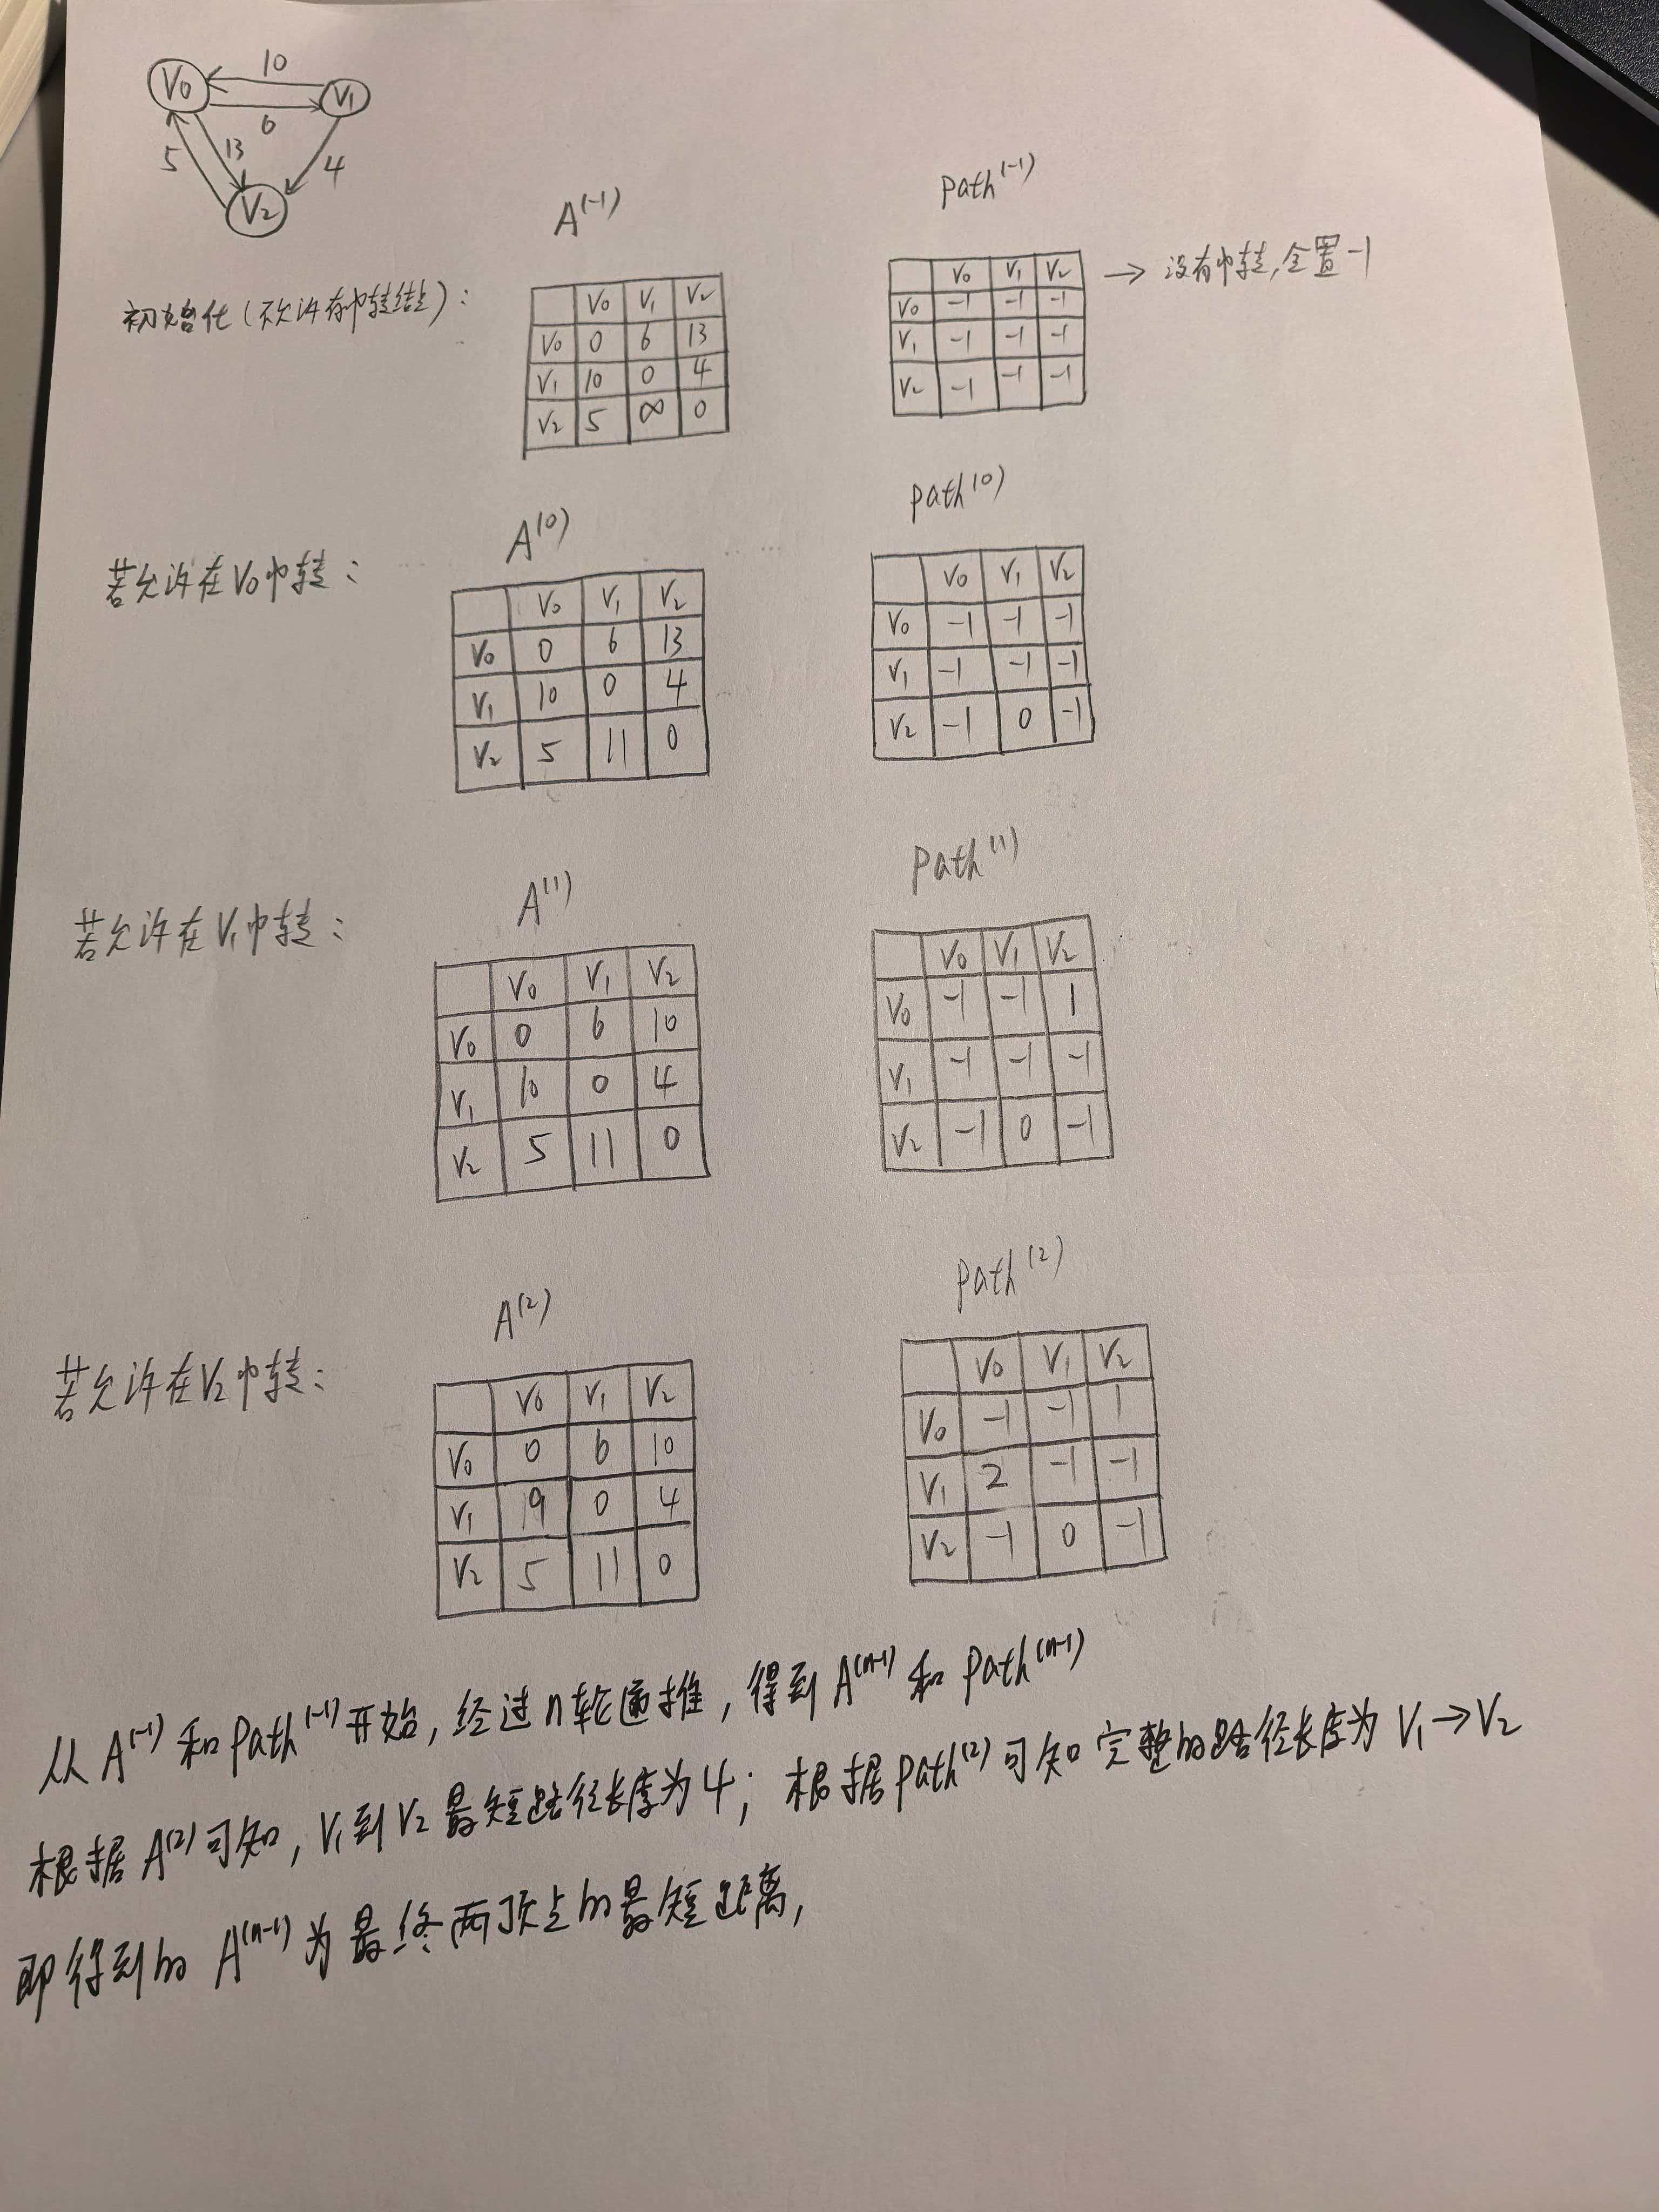 V0 10 V1
6
5 13 4
V2
A(-1) path(-1)
初始化(不允许有中转结点): → 没有中转,全置-1
V0 V1 V2
V0 0 6 13
V1 10 0 4
V2 5 ∞ 0
V0 V1 V2
V0 -1 -1 -1
V1 -1 -1 -1
V2 -1 -1 -1
A(0) path(0)
若允许在V0中转:
V0 V1 V2
V0 0 6 13
V1 10 0 4
V2 5 11 0
V0 V1 V2
V0 -1 -1 -1
V1 -1 -1 -1
V2 -1 0 -1
A(1) path(1)
若允许在V1中转:
V0 V1 V2
V0 0 6 10
V1 10 0 4
V2 5 11 0
V0 V1 V2
V0 -1 -1 1
V1 -1 -1 -1
V2 -1 0 -1
A(2) path(2)
若允许在V2中转:
V0 V1 V2
V0 0 6 10
V1 9 0 4
V2 5 11 0
V0 V1 V2
V0 -1 -1 1
V1 2 -1 -1
V2 -1 0 -1
从A(-1)和path(-1)开始,经过n轮递推,得到A(n-1)和path(n-1)
根据A(2)可知,V1到V2最短路径长度为4;根据path(2)可知完整的路径长度为V1→V2
即得到的A(n-1)为最终两顶点的最短距离,